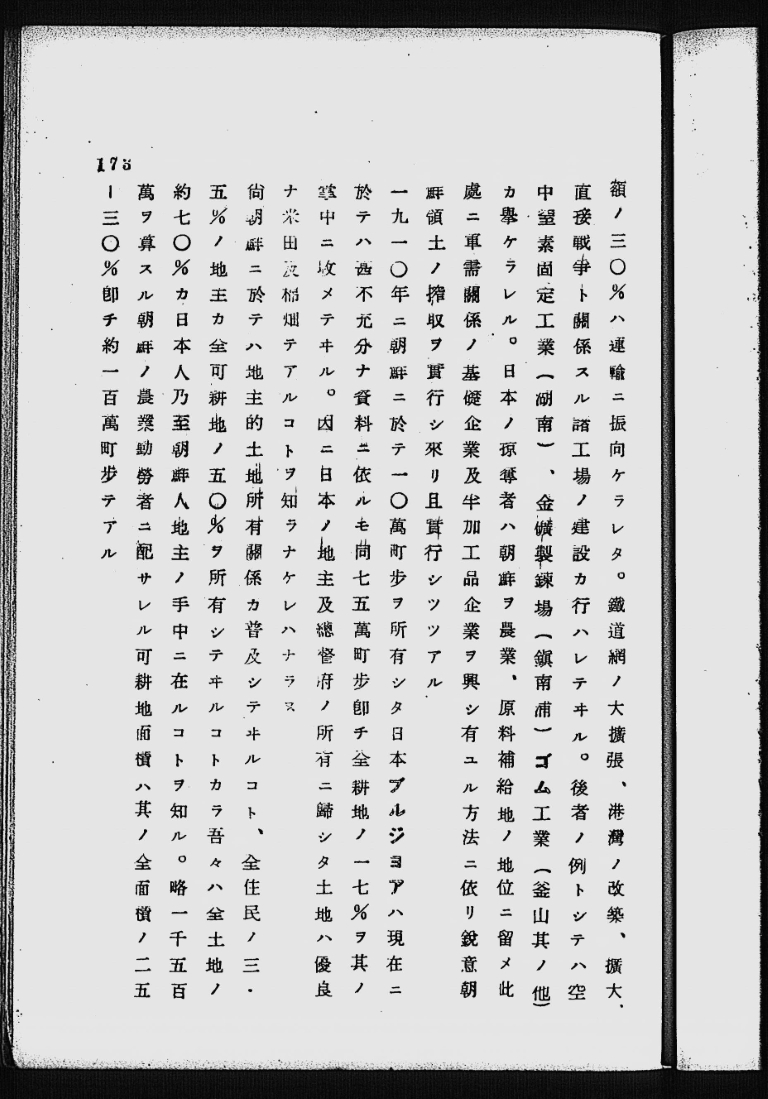 額ノ三〇%ハ運輸ニ振向ケラレタ。鐵道網ノ大擴張、港灣ノ改築、擴大、
直接戰爭ト關係スル諸工場ノ建設カ行ハレテヰル。後者ノ例トシテハ空
中窒素固定工業(湖南)、金礦製鍊場(鎭南浦)ゴム工業(釜山其ノ他)
カ擧ケラレル。日本ノ掠奪者ハ朝鮮ヲ農業、原料補給地ノ地位ニ留メ此
處ニ軍需關係ノ基礎企業及半加工品企業ヲ興シ有ユル方法ニ依リ銳意朝
鮮領土ノ搾取ヲ實行シ來リ且實行シツツアル
一九一〇年ニ朝鮮ニ於テ一〇萬町步ヲ所有シタ日本ブルジヨアハ現在ニ
於テハ甚不充分ナ資料ニ依ルモ同七五萬町步卽チ全耕地ノ一七%ヲ其ノ
掌中ニ收メテヰル。因ニ日本ノ地主及總督府ノ所有ニ歸シタ土地ハ優良
ナ米田及棉畑テアルコトヲ知ラナケレハナラヌ
尙朝鮮ニ於テハ地主的土地所有關係カ普及シテヰルコト、全住民ノ三・
五%ノ地主カ全可耕地ノ五〇%ヲ所有シテヰルコトカラ吾々ハ全土地ノ
約七〇%カ日本人乃至朝鮮人地主ノ手中ニ在ルコトヲ知ル。略一千五百
萬ヲ算スル朝鮮ノ農業勤勞者ニ配サレル可耕地面積ハ其ノ全面積ノ二五
ー三〇%卽チ約一百萬町步テアル